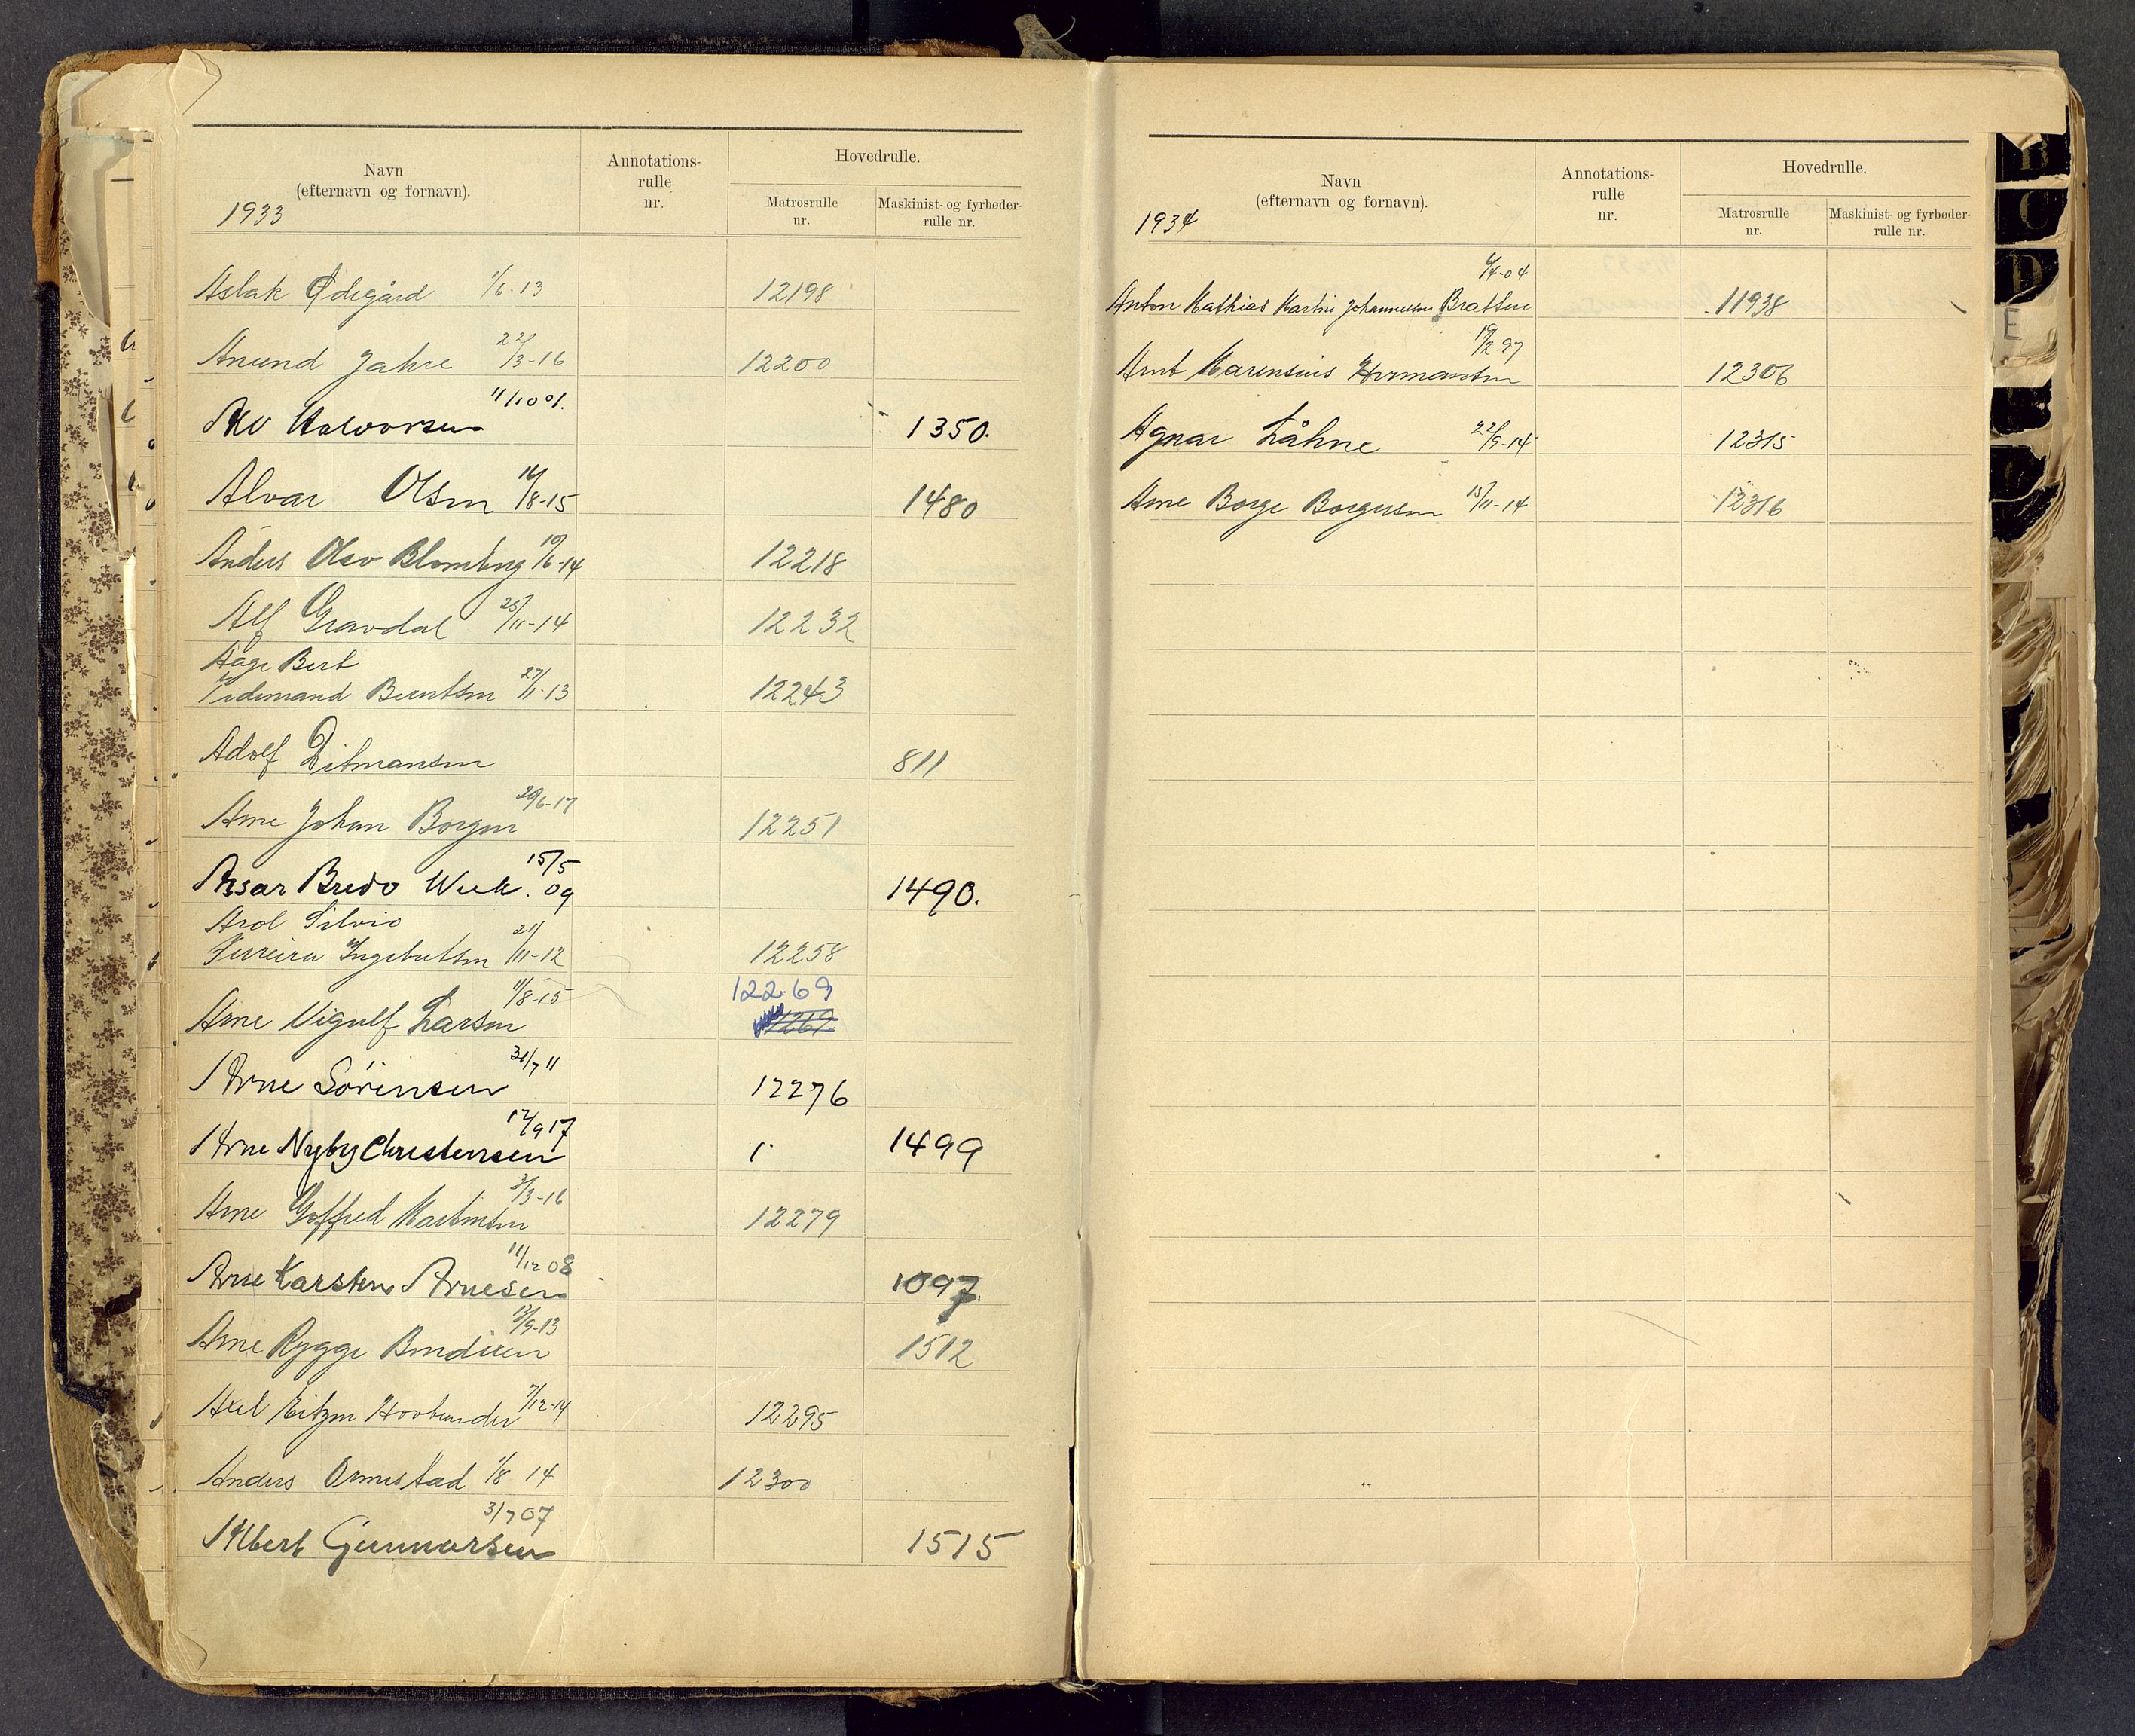 Navn
(efternavn og fornavn).
1933
Annotations-
rulle
nr.
Hovedrulle.
Matrosrulle
nr.
Maskinist- og fyrbøder-
rulle nr.
Aslak Ødegård 1/6-13 12198
Anund Jahre 22/3-16 12200
Alv Halvorsen 11/10 01. 1350.
Alvar Olsen 16/8-15 1480
Anders Olav Blomberg 10/6-14 12218
Alf Gravdal 25/11-14 12232
Aage Bert
Tidemand Berntsen 27/1-13 12243
Adolf Ditmansen 811
Arne Johan Borgen 29/6-17 12251
Assar Bredo Week. 15/5 09 1490.
Arol Silvio
Ferreira Ingebretsen 21/11-12 12258
Arne Vigulf Larsen 11/8-15 12269
Arne Sörensen 31/7 11 12276
Arne Nyby Christensen 12/9 17 1 1499
Arne Goffred Martinsen 3/3-16 12279
Arne Karstens Arnesen 11/12 08 1097.
Arne Rygge Bendixen 13/9-13 1512
Axel 7/12-14 12295
Anders Ormestad 1/8 14 12300
Albert Gunnarsen 3/7 07 1515
Navn
(efternavn og fornavn).
1934
Annotations-
rulle
nr.
Hovedrulle.
Matrosrulle
nr.
Maskinist- og fyrbøder-
rulle nr.
Anton Mathias Martin Johannessen Bratten 6/4-04 11938
Arnt Marensius Hermansen 19/2-97 12306
Agnar Låhne 22/9-14 12315
Arne Borge Borgersen 15/11-14 12316
B
C
D
E